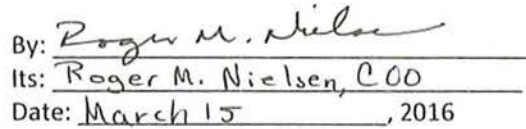 By: Roger M. Nielse
Its: Roger M. Nielsen, COO
Date: March 15, 2016